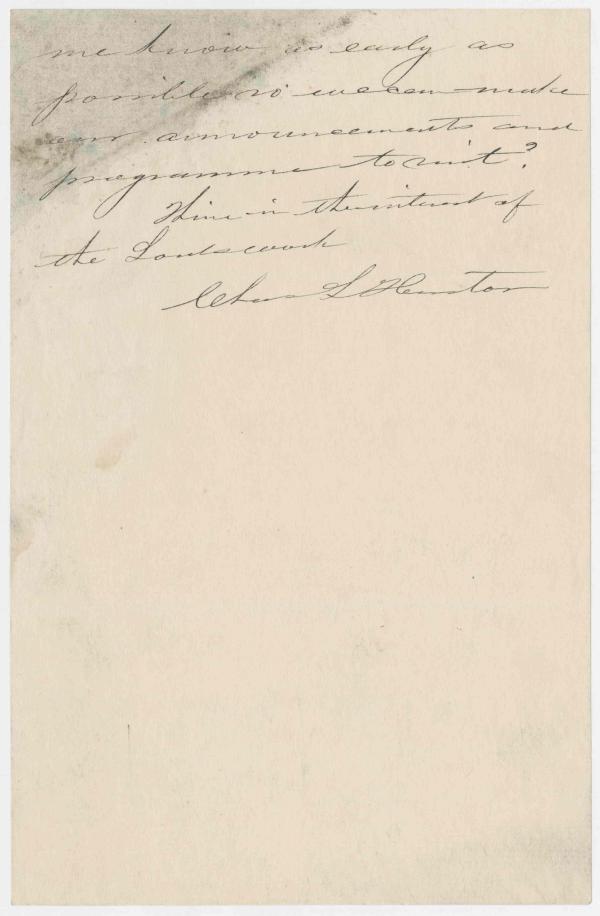 me know as early as
possible so we can make
our announcements and
programme to suit?
Thine in the interest of
the Lord's work
Chas L Huston